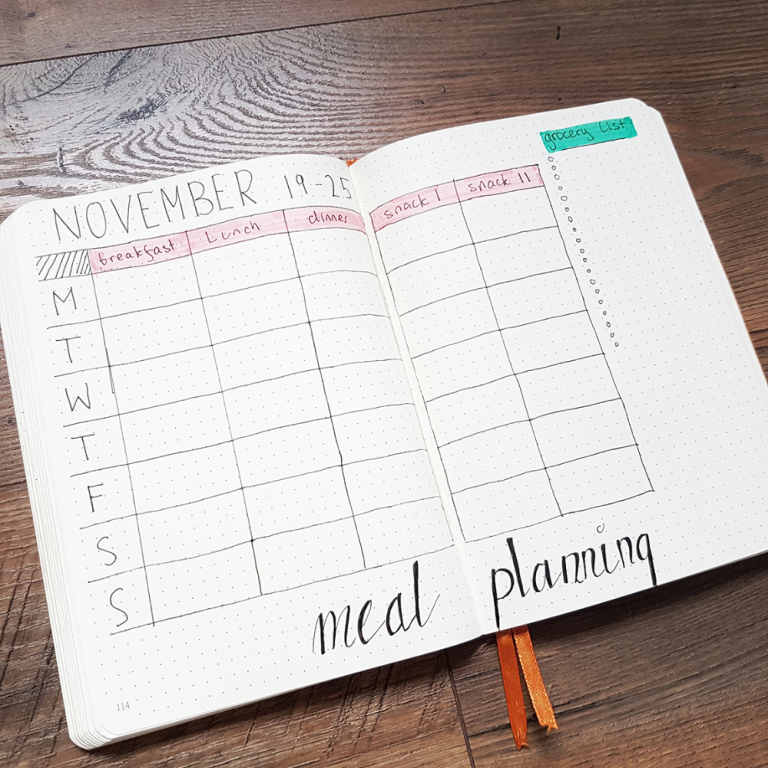 NOVEMBER 19-25
breakfast Lunch dinner snack I snack II
grocery list
M
T
W
T
F
S
S
meal planning
114